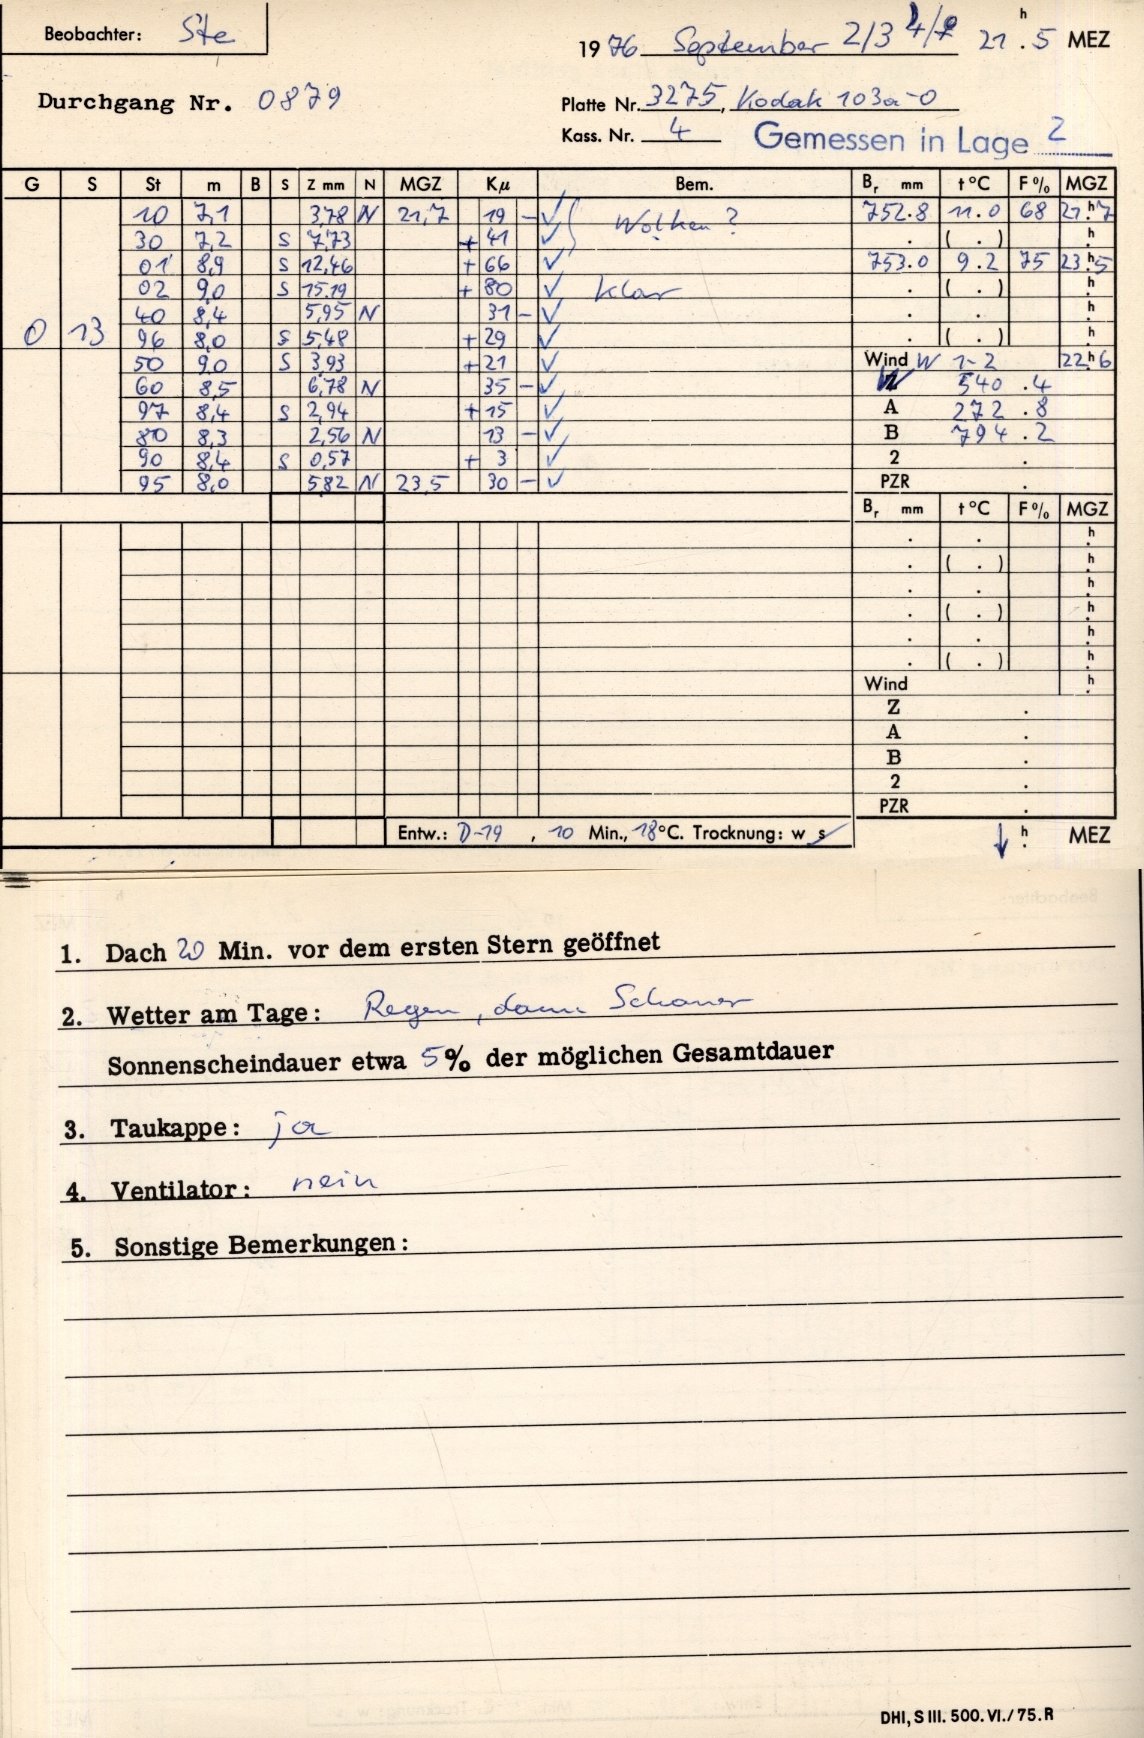 Beobachter: Ste
1976 September 2/3 21 h . 5 MEZ
Durchgang Nr. 0879
Platte Nr. 3275, Kodak 103a-O
Kass. Nr. 4 Gemessen in Lage 2
G S St m B S Z mm N MGZ Kμ Bem. Br mm t °C F% MGZ
10 7,1 3,78 N 21,7 19 – ✓ Wolken ? 752.8 11.0 68 21h.7
30 7,2 S 7,73 + 41 ✓ . ( . ) h.
01 8,9 S 12,46 + 66 ✓ 753.0 9.2 75 23h.5
02 9,0 S 15,19 + 80 ✓ klar . ( . ) h.
40 8,4 5,95 N 31 – ✓ . . h.
0 13 96 8,0 S 5,48 + 29 ✓ . ( . ) h.
50 9,0 S 3,93 + 21 ✓ Wind W 1-2 22h.6
60 8,5 6,78 N 35 – ✓ 540 .4
97 8,4 S 2,94 + 15 ✓ A 272 .8
80 8,3 2,56 N 13 – ✓ B 794 .2
90 8,4 S 0,57 + 3 ✓ 2 .
95 8,0 5,82 N 23,5 30 – ✓ PZR .
Br mm t °C F% MGZ
. . h.
. ( . ) h.
. . h.
. ( . ) h.
. . h.
. ( . ) h.
Wind h.
Z .
A .
B .
2 .
PZR .
Entw.: D-19 , 10 Min., 18°C. Trocknung: w s ↓ h. MEZ
1. Dach 20 Min. vor dem ersten Stern geöffnet
2. Wetter am Tage: Regen, dann Schauer
Sonnenscheindauer etwa 5% der möglichen Gesamtdauer
3. Taukappe: ja
4. Ventilator: nein
5. Sonstige Bemerkungen:
DHI, S III. 500. VI./75. R